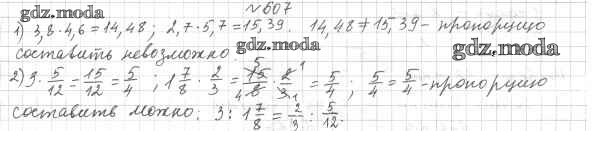 №607
gdz.moda
1) 3,8 · 4,6 = 14,48; 2,7 · 5,7 = 15,39. 14,48 ≠ 15,39 – пропорцию
составить невозможно
gdz.moda gdz.moda
2) 3 · 5/12 = 15/12 = 5/4; 1 7/8 · 2/3 = 15/8 · 2/3 = 5/4; 5/4 = 5/4 – пропорцию
составить можно: 3 : 1 7/8 = 2/3 : 5/12.